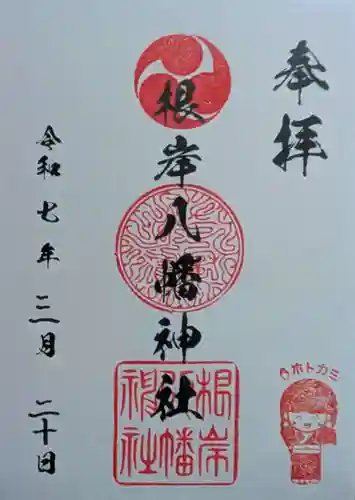 奉拝
根岸八幡神社
根岸
八幡
神社
令和七年三月二十日
ホトカミ